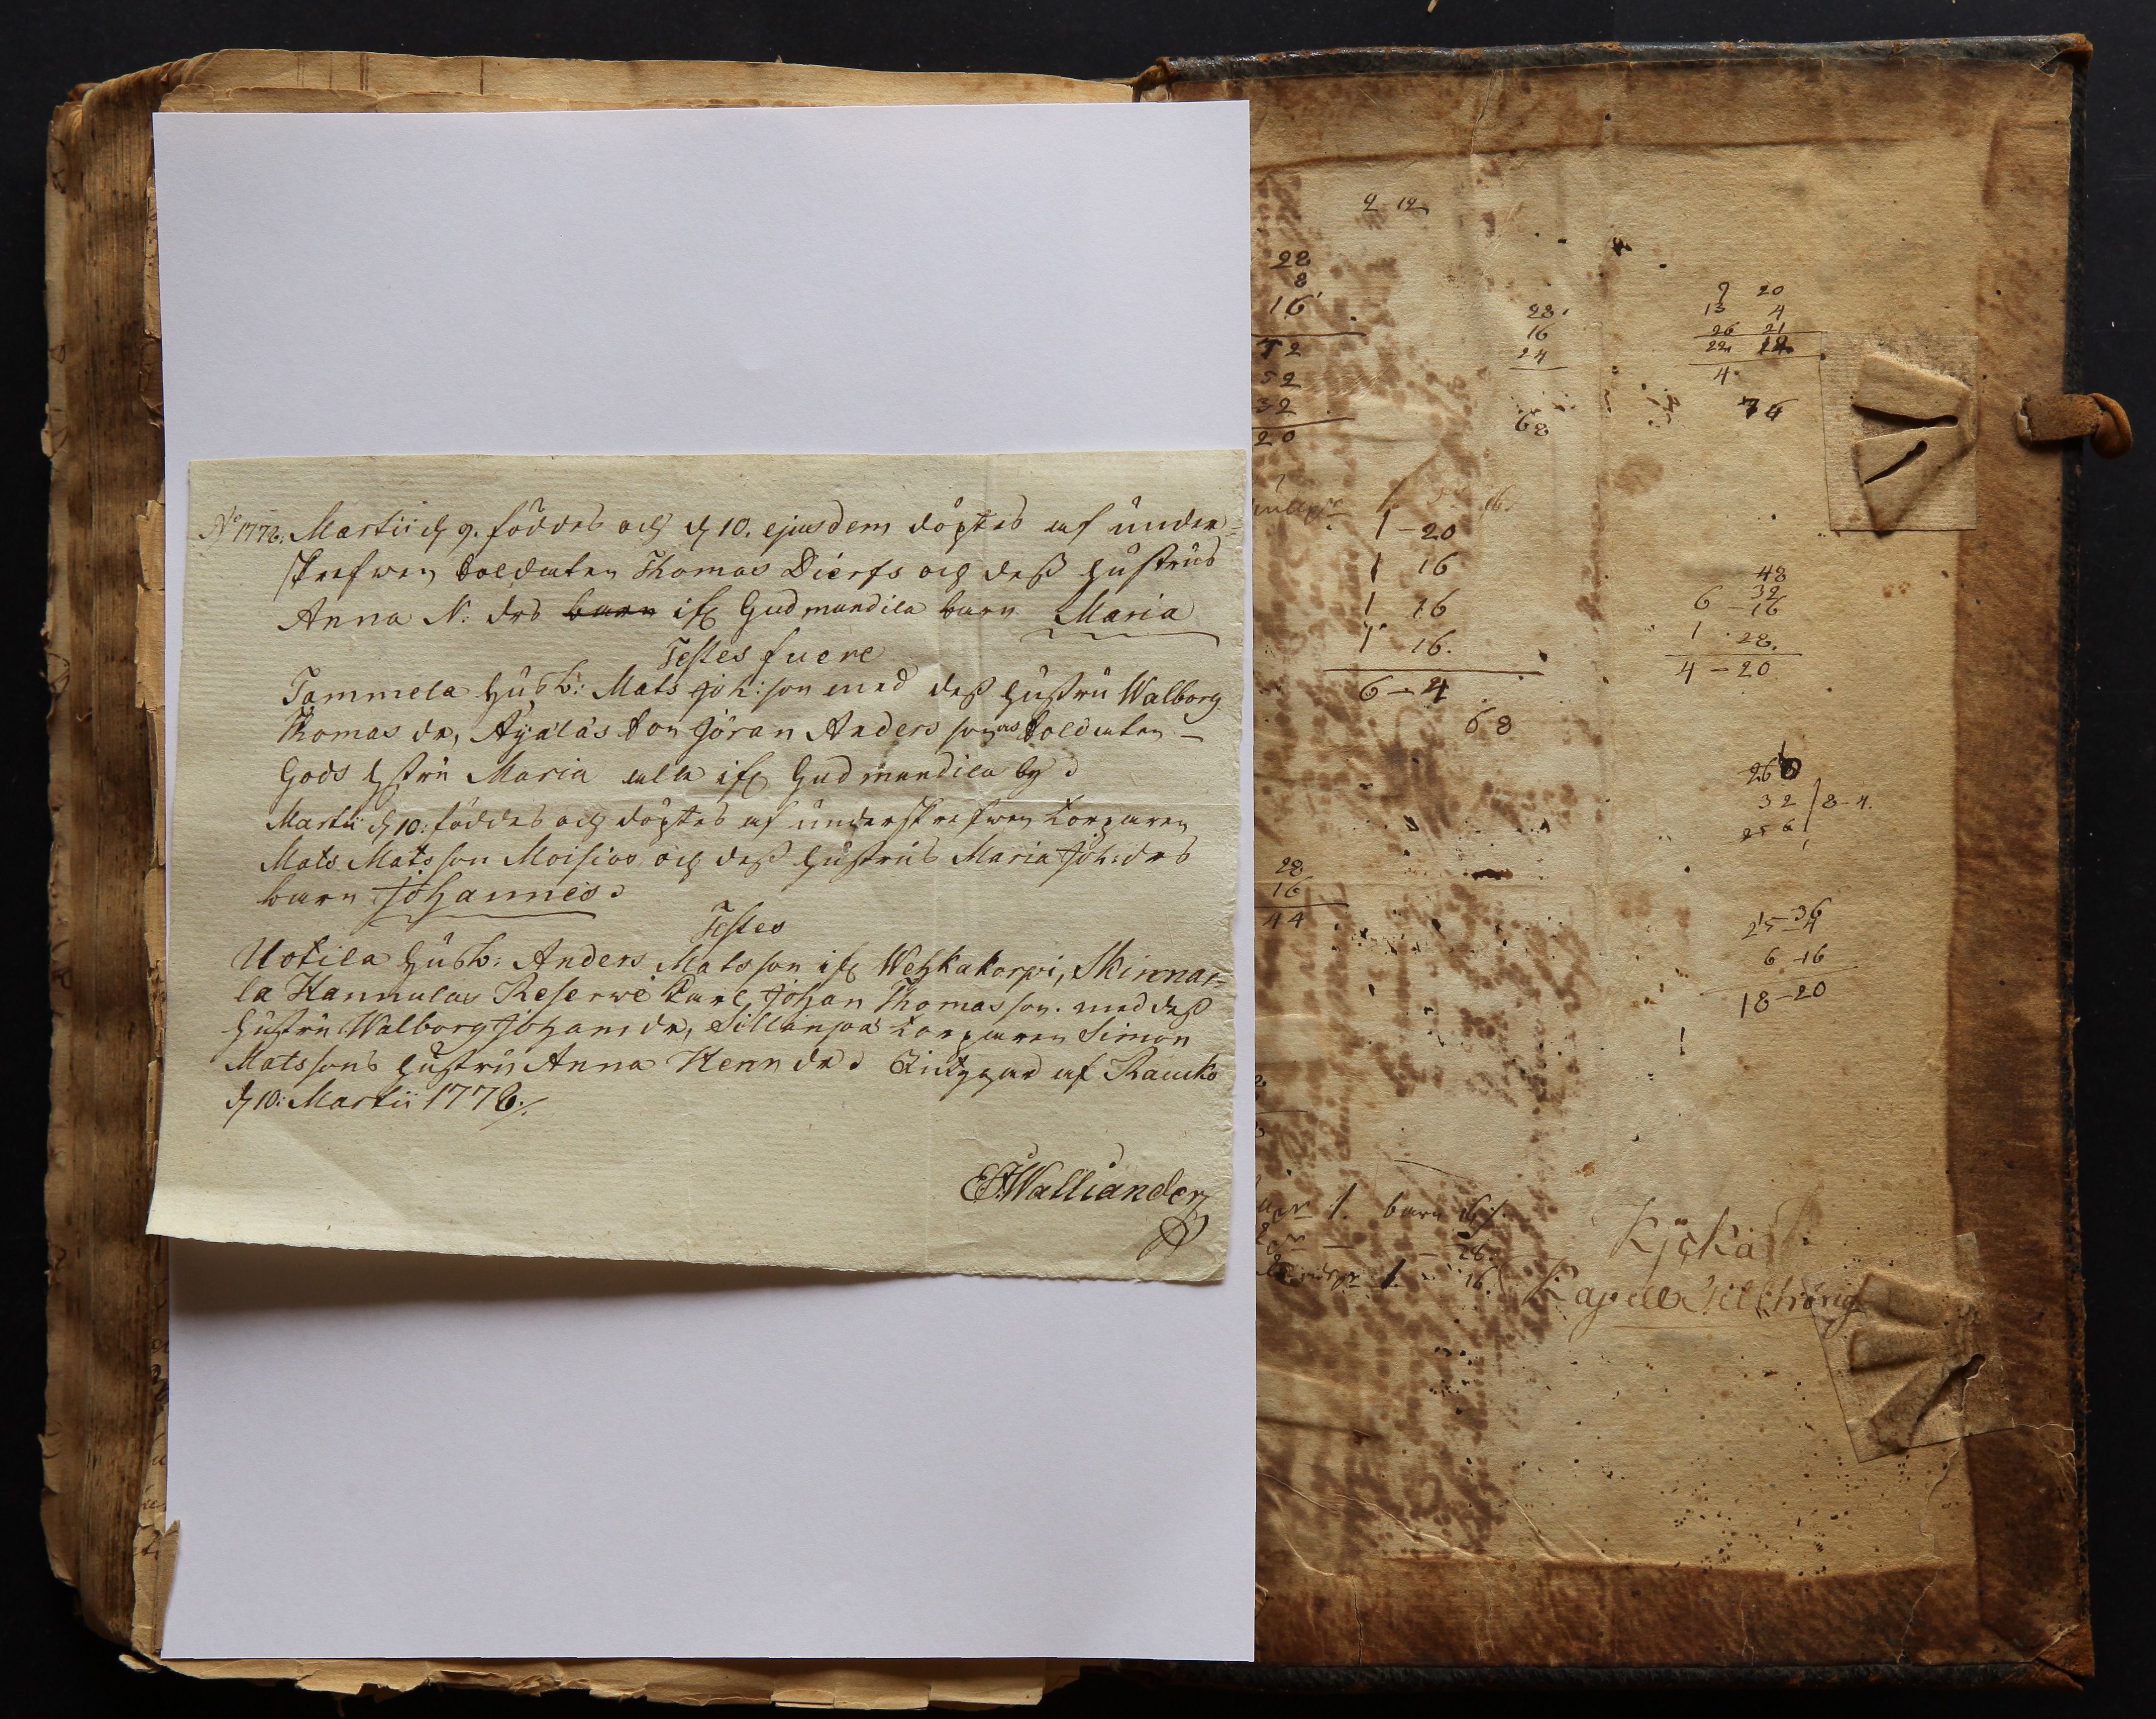 Aº 1776. Martii d 9. föddes och d 10. ejusdem döptes af under-
skrefwen Soldaten Thomas Dierfs och dess hustrus
Anna N: drs barn ifr Gudmundila barn Maria
Testes fuere
Tammela Husb: Mats Joh:son med dess hustru Walborg
Thomas dr, Äyäläs son Jöran Andersson as Soldaten
Gods hstru Maria alla ifr Gudmundila by
Martii d 10: föddes och döptes af underskrefwen Torparen
Mats Matsson Moisios och dess hustrus Maria Joh:drs
barn Johannes
Testes
Uotila Husb: Anders Matsson ifr Wehkakorpi, Skinnar-
la Hannulas Reserve Karl, Johan Thomasson. med dess
hustru Walborg Johansdr, Sillanpää Torparen Simon
Matssons hustru Anna Henn dr af Raucko
d 10: Martii 1776.
E. Walliander
2-12
28
8
16
72
52
32
20
28
16
24
68
9 20
13 4
26 21
22
4
76
1-20
1 16
1 16
1 16.
6-4
68
48
32
6-16
1 28.
4-20
26
32 8-4.
256
28
16
44
36
25-4
6-16
18-20
1. barn 16
28
1 16.
Kjrkiä
Capell tilhörig